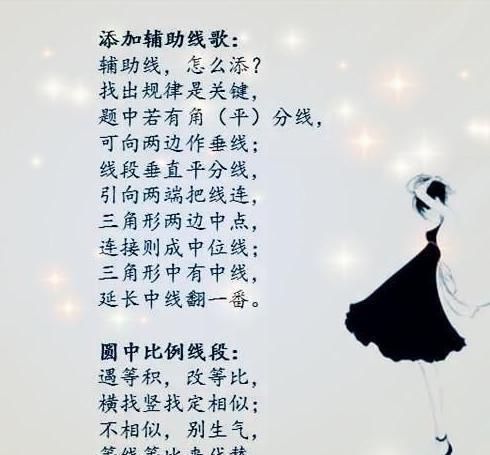 添加辅助线歌：
辅助线，怎么添？
找出规律是关键，
题中若有角（平）分线，
可向两边作垂线；
线段垂直平分线，
引向两端把线连，
三角形两边中点，
连接则成中位线；
三角形中有中线，
延长中线翻一番。
圆中比例线段：
遇等积，改等比，
横找竖找定相似；
不相似，别生气，
等线等比来代替